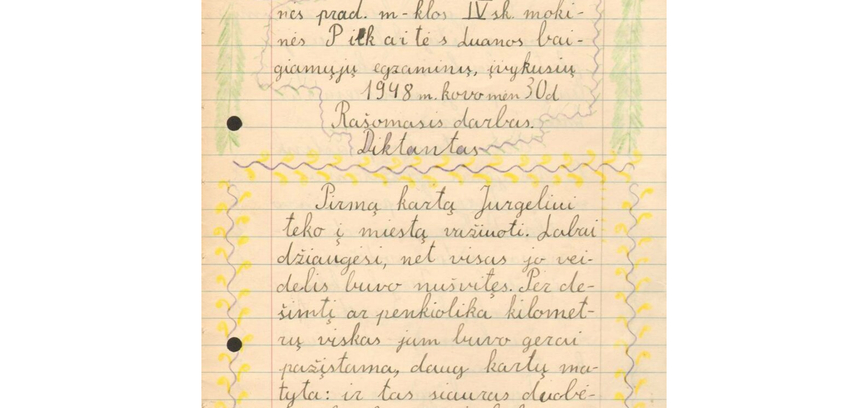 nės prad. m-klos IV sk. moki-
nės Pilkaitės duanos bai-
giamųjų egzaminų, įvykusių
1948 m. kovo mėn 30 d
Rašomasis darbas.
Diktantas
Pirmą kartą Jurgeliui
teko į miestą važiuoti. Labai
džiaugėsi, net visas jo vei-
delis buvo nušvitęs. Per de-
šimtį ar penkiolika kilomet-
rų viskas jam buvo gerai
pažįstama, daug kartų ma-
tyta: ir tas siauras duobė-